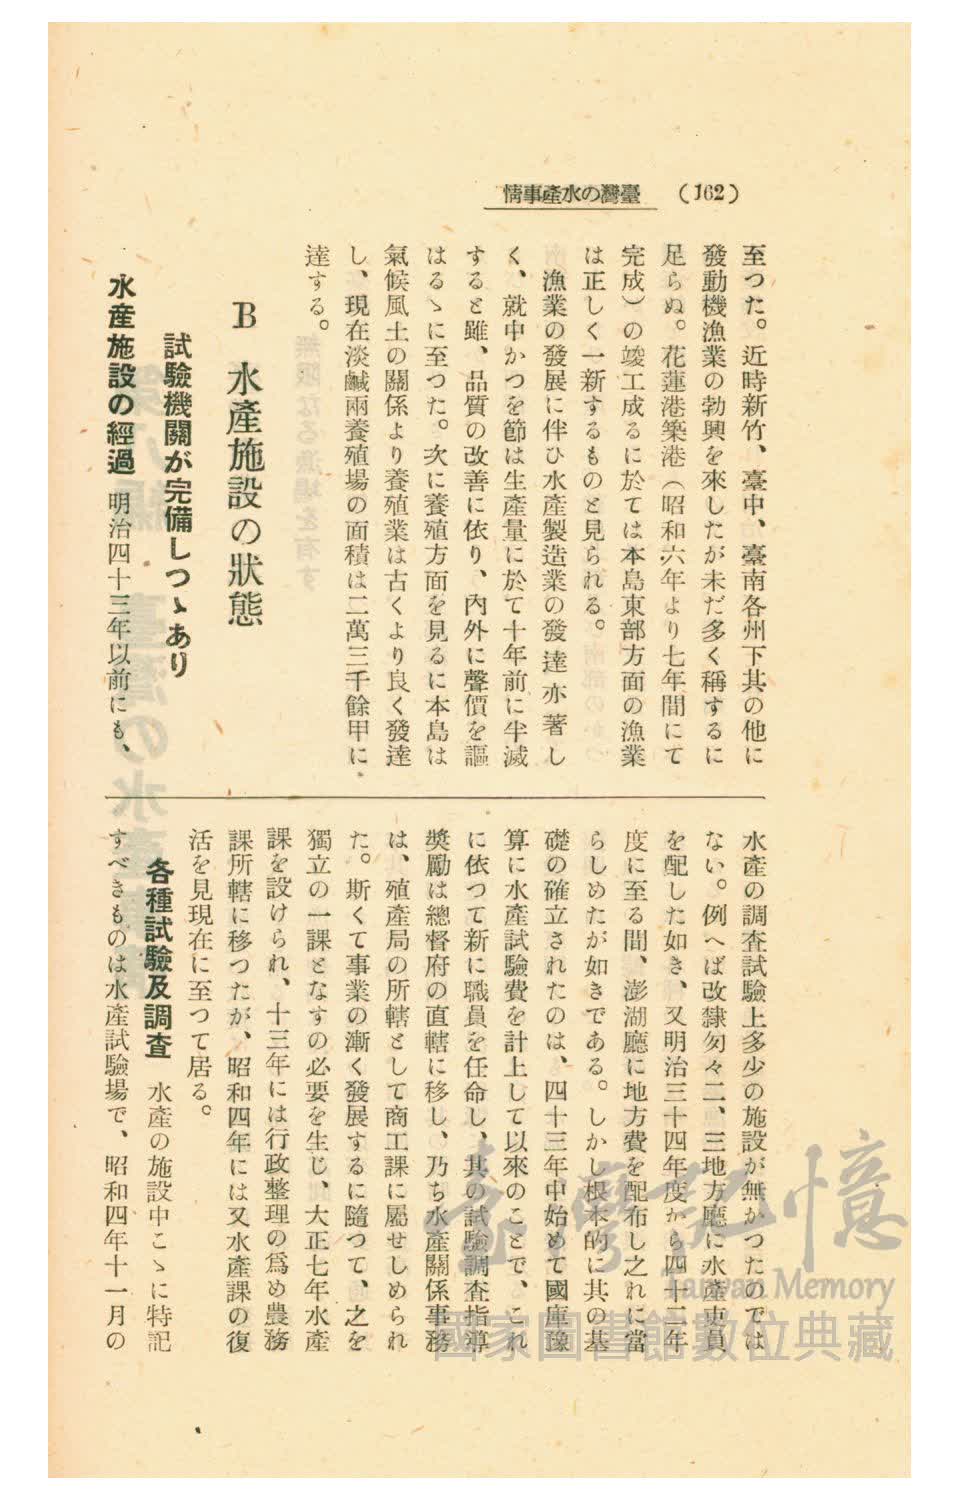 (162)
臺灣の水產事情
至つた。近時新竹、臺中、臺南各州下其の他に
發動機漁業の勃興を來したが未だ多く稱するに
足らぬ。花蓮港築港（昭和六年より七年間にて
完成）の竣工成るに於ては本島東部方面の漁業
は正しく一新するものと見られる。
漁業の發展に伴ひ水產製造業の發達亦著し
く、就中かつを節は生產量に於て十年前に半減
すると雖、品質の改善に依り、內外に聲價を謳
はるゝに至つた。次に養殖方面を見るに本島は
氣候風土の關係より養殖業は古くより良く發達
し、現在淡鹹兩養殖場の面積は二萬三千餘甲に
達する。
B 水產施設の狀態
試驗機關が完備しつゝあり
水產施設の經過 明治四十三年以前にも、
水產の調查試驗上多少の施設が無かつたのでは
ない。例へば改隸匆々二、三地方廳に水產吏員
を配した如き、又明治三十四年度から四十二年
度に至る間、澎湖廳に地方費を配布し之れに當
らしめたが如きである。しかし根本的に其の基
礎の確立されたのは、四十三年中始めて國庫豫
算に水產試驗費を計上して以來のことで、これ
に依つて新に職員を任命し、其の試驗調查指導
獎勵は總督府の直轄に移し、乃ち水產關係事務
は、殖產局の所轄として商工課に屬せしめられ
た。斯くて事業の漸く發展するに隨つて、之を
獨立の一課となすの必要を生じ、大正七年水產
課を設けられ、十三年には行政整理の爲め農務
課所轄に移つたが、昭和四年には又水產課の復
活を見現在に至つて居る。
各種試驗及調查 水產の施設中こゝに特記
すべきものは水產試驗場で、昭和四年十一月の
臺灣記憶
Taiwan Memory
國家圖書館數位典藏